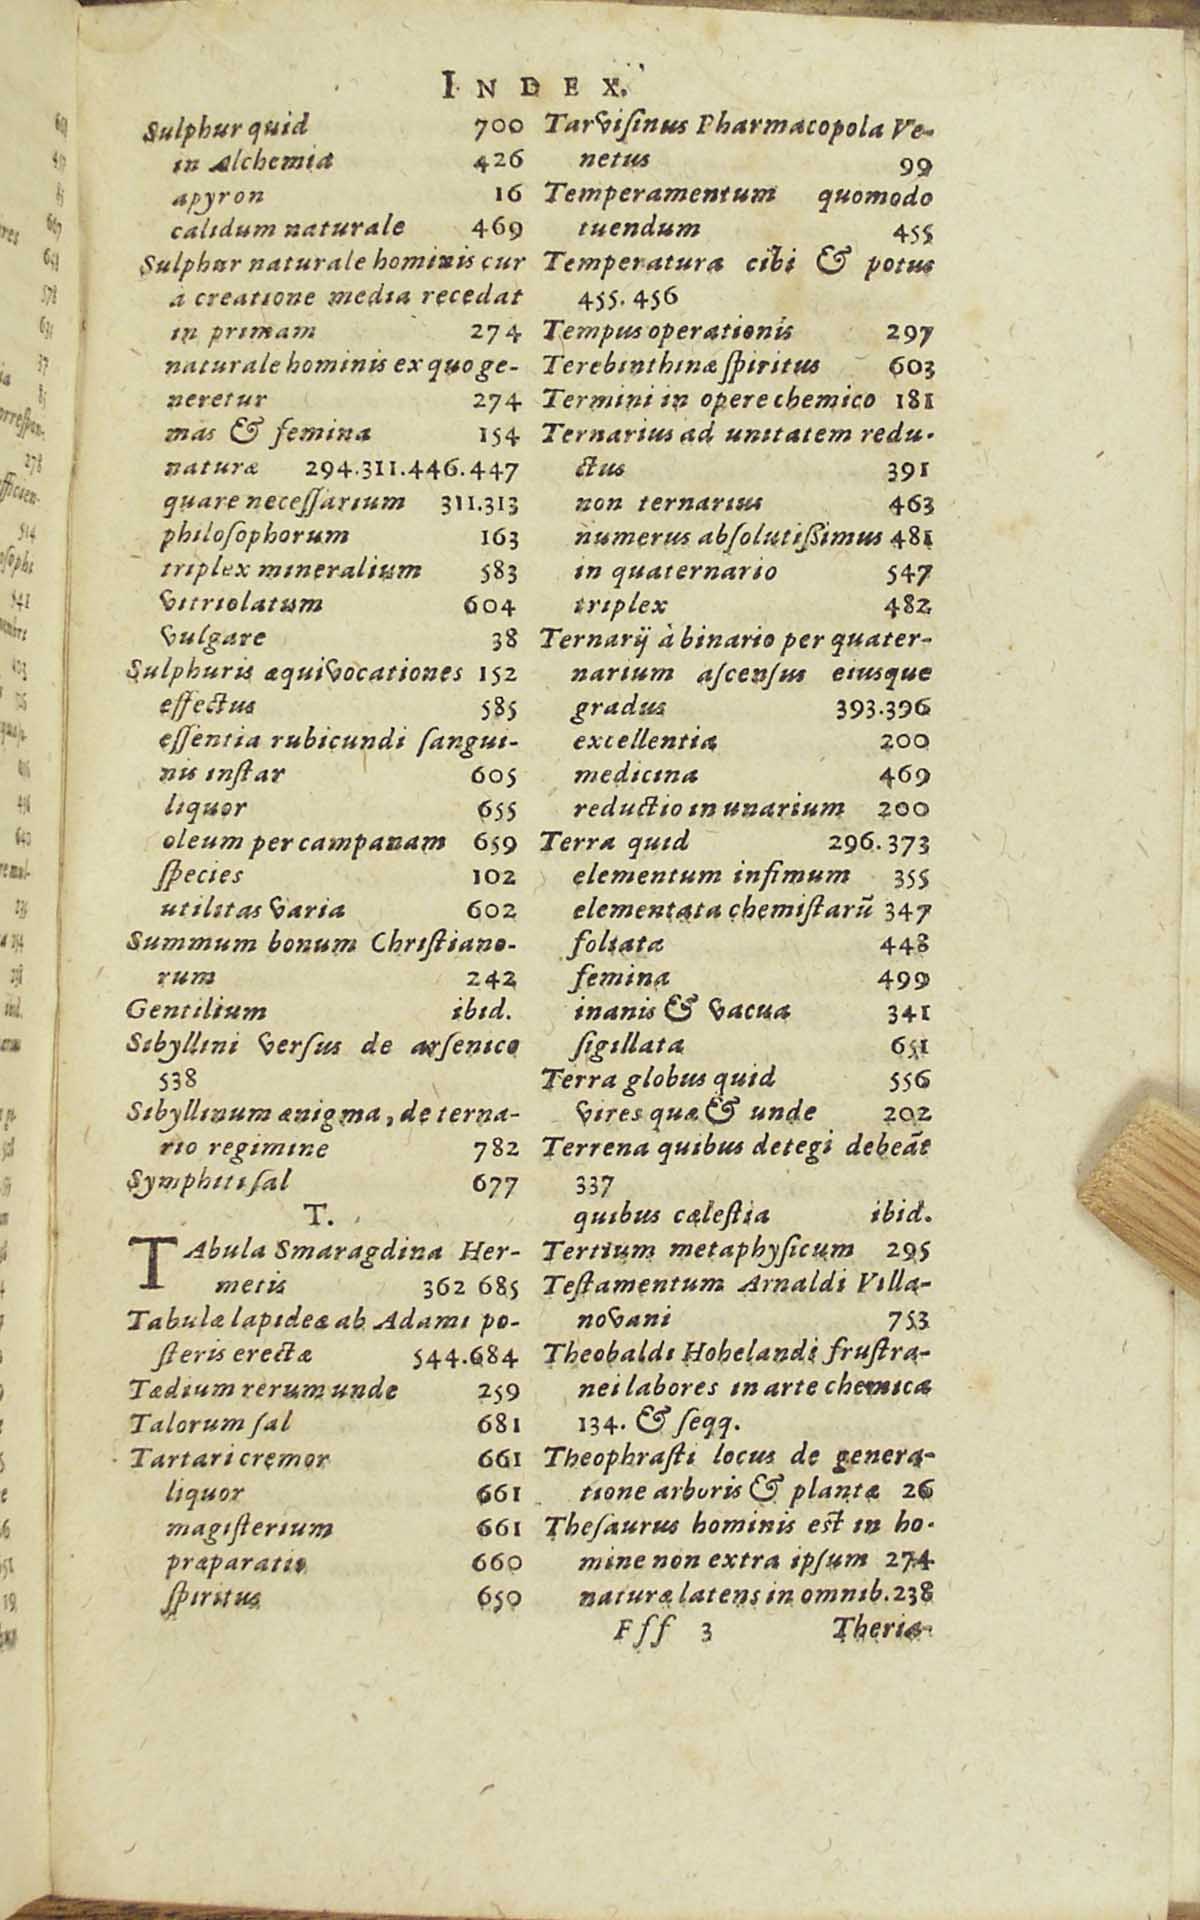 INDEX.
Sulphur quid 700
in Alchemia 426
apyron 16
calidum naturale 469
Sulphur naturale hominis cur
a creatione media recedat
in primam 274
naturale hominis ex quo ge-
neretur 274
mas & femina 154
naturæ 294.311.446.447
quare neceſſarium 311.313
philoſophorum 163
triplex mineralium 583
vitriolatum 604
vulgare 38
Sulphuris æquivocationes 152
effectus 585
eſſentia rubicundi ſangui-
nis inſtar 605
liquor 655
oleum per campanam 659
ſpecies 102
utilitas varia 602
Summum bonum Chriſtiano-
rum 242
Gentilium ibid.
Sibyllini verſus de arſenico
538
Sibyllinum ænigma, de terna-
rio regimine 782
Symphiti ſal 677
T.
TAbula Smaragdina Her-
metis 362 685
Tabulæ lapideæ ab Adami po-
ſteris erectæ 544.684
Tædium rerum unde 259
Talorum ſal 681
Tartari cremor 661
liquor 661
magiſterium 661
præparatio 660
ſpiritus 650
Tarviſinus Pharmacopola Ve-
netus 99
Temperamentum quomodo
tuendum 455
Temperatura cibi & potus
455. 456
Tempus operationis 297
Terebinthinæ ſpiritus 603
Termini in opere chemico 181
Ternarius ad unitatem redu-
ctus 391
non ternarius 463
numerus abſolutißimus 481
in quaternario 547
triplex 482
Ternarij à binario per quater-
narium aſcenſus eiusque
gradus 393.396
excellentia 200
medicina 469
reductio in unarium 200
Terra quid 296.373
elementum infimum 355
elementata chemiſtarū 347
foliata 448
femina 499
inanis & vacua 341
ſigillata 651
Terra globus quid 556
vires quæ & unde 202
Terrena quibus detegi debeāt
337
quibus cæleſtia ibid.
Tertium metaphyſicum 295
Teſtamentum Arnaldi Villa-
novani 753
Theobaldi Hohelandi fruſtra-
nei labores in arte chemica
134. & ſeqq.
Theophraſti locus de genera-
tione arboris & plantæ 26
Theſaurus hominis est in ho-
mine non extra ipſum 274
naturæ latens in omnib. 238
Fff 3 Theria-